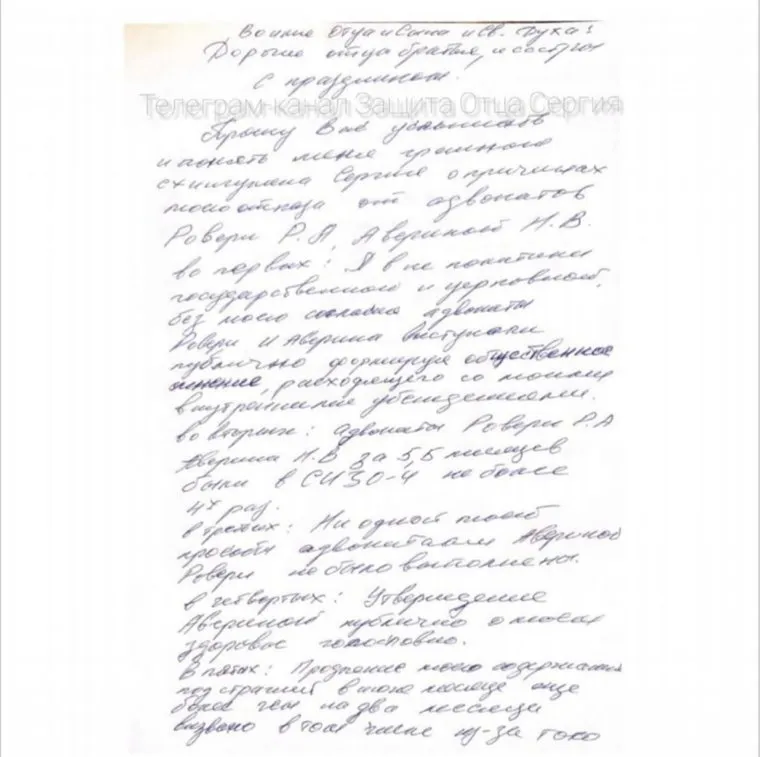 Во имя Отца и Сына и Св. Духа!
Дорогие отцы братия, и сестры
С праздником.
Телеграм-канал Защита Отца Сергия
Прошу Вас услышать
и понять меня грешного
схиигумена Сергия о причинах
моего отказа от адвокатов
Ровери Р.А, Авериной Н.В.
во первых: Я вне политики
государственной и церковной,
без моего согласия адвокаты
Ровери и Аверина выступали
публично формируя общественное
мнение, расходящего со моими
внутренними убеждениями.
во вторых: адвокаты Ровери Р.А
Аверина Н.В за 5,5 месяцев
были в СИЗО-4 не более
4х раз.
в третьих: Ни одной моей
просьбы адвокатами Авериной
Ровери не было выполнены.
в четвертых: Утверждение
Авериной публично о моем
здоровье голословно.
В пятых: Продление моего содержания
под стражей в июне месяце еще
более чем на два месяца
вызвано в том числе из-за того